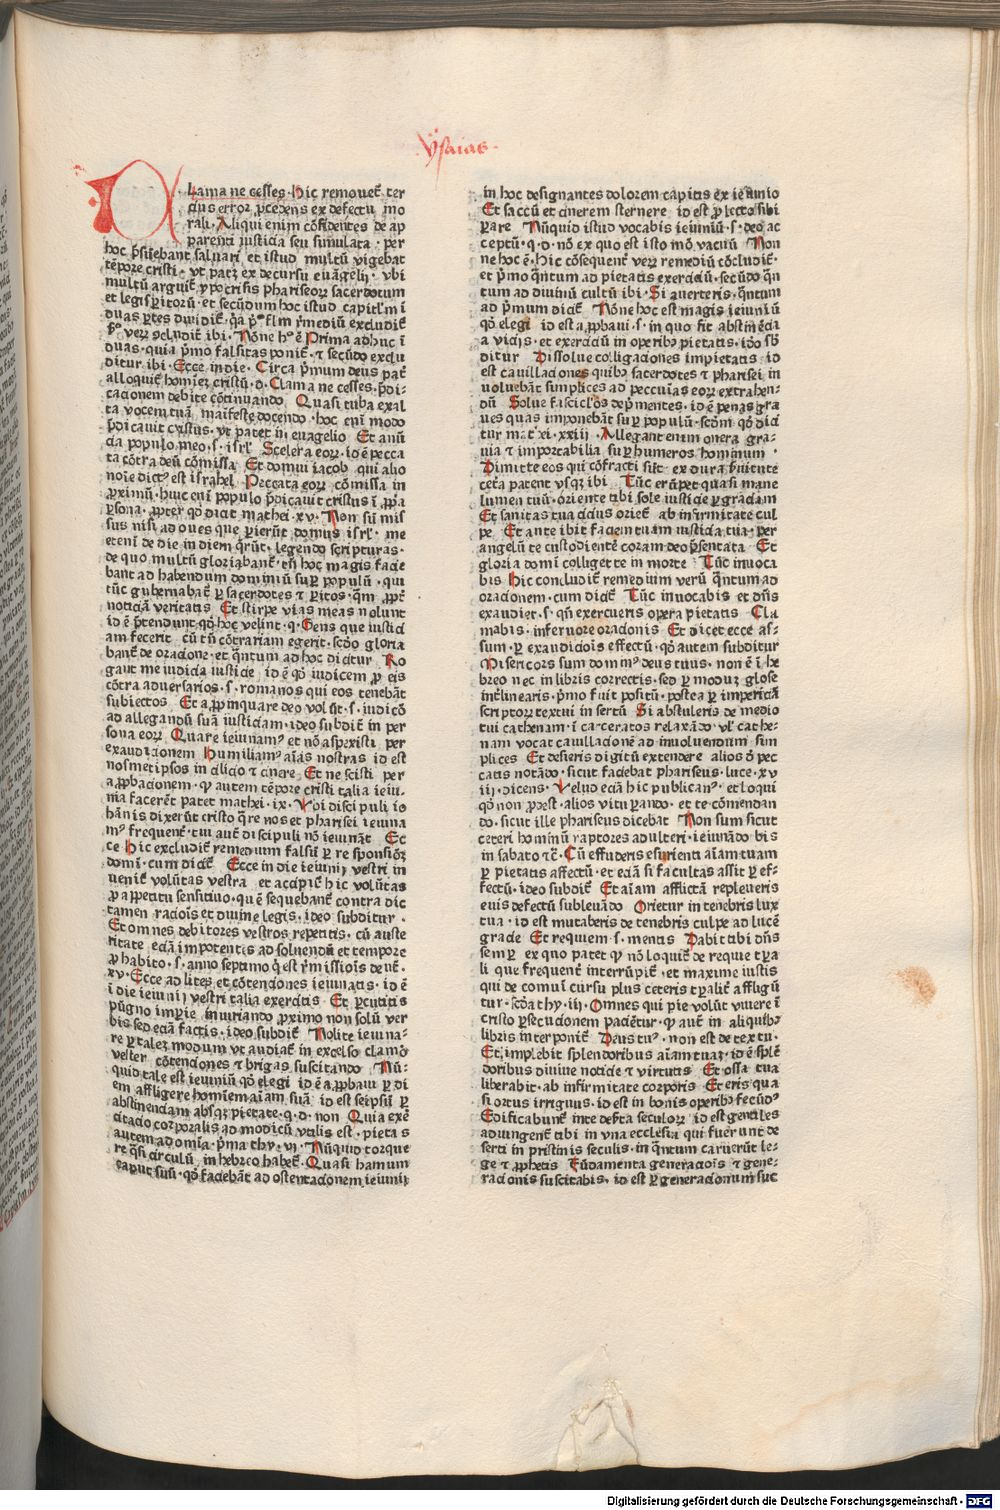 ysaias
Clama ne cesses. Hic remouet͛ ter
cius error p̲cedens ex defectu mo
rali. Aliqui enim cōfidentes de ap
parenti iusticia seu simulata. per
hoc p̄sūebant saluari et istud multū vigebat
tēpore cristi. vt patꝫ ex decursu euāgelij. vbi
multū arguit͛ ypocrisis phariseoꝝ sacerdotum
et legisꝑitoꝝ. et secūdum hoc istud capitl̄m ī
duas ꝑtes diuidit͛. q̄a pº flm̄ r̄mediū excludit͛
veꝝ ꝯcludit͛ ibi. Nōne hº ē Prima adhuc ī
duas. quia p̄mo falsitas ponit͛. ⁊ secūdo exclu
ditur ibi. Ecce in die. Circa p̄mum deus pat͛
alloquit͛ homīeꝫ cristū. d. Clama ne cesses. p̄di-
cacionem debite cōtinuando Quasi tuba exal
ta vocem tuā maīfeste docendo. hoc enī modo
p̄dicauit cristus. vt patet in euagelio Et anū
cia populo meo. s. isrl̓. Scelera eoꝝ. id ē pecca
ta cōtra deū cōmissa Et domui iacob qui alio
noīe dictꝰ est israhel Peccata eoꝝ cōmissa in
ꝓximū. huic enī populo p̄dicauit cristus ī ꝓp̄a
ꝑsona. ꝓpter qō dicit mathei. xv. Non sū mis
sus nisi ad oues que ꝑierūt domus isrl̓. me
etenī de die in diem q̄rūt. legendo scripturas.
de quo multū gloriabant͛. et̄ hoc magis facie
bant ad habendum dominiū suꝑ populū. qui
tūc gubernabat͛ ꝑ sacerdotes ⁊ ꝑitos. q̄m ꝓpt͛
noticiā veritatis Et stirpe vias meas nolunt
id ē p̄tendunt qō hoc velint. q. Gens que iustici
am fecerit cū tn̄ cōtrariam egerit. scdō gloria
bant͛ de oracione. et q̄ntum ad hoc dicitur Ro
gant me iudicia iusticie id ē qō iudicem ꝑ eis
cōtra aduersarios. s. romanos qui eos tenebāt
subiectos Et appinquare deo volūt. s. iudicō
ad allegandū suā iusticiam. ideo subdit͛ in per
sona eoꝝ Quare ieiunamꝰ et nō aspexisti per
exaudicionem Humiliamꝰ aīas nostras id est
nosmetipsos in cilicio ⁊ cinere Et ne scisti per
approbacionem. ꝙ autem tēpore cristi talia ieiu
nia facerēt patet mathei. ix. Vbi discipuli io
hānis dixerūt cristo q̄re nos et pharisei ieiuna
mꝰ frequent͛. tui aut͛ discipuli nō ieiunāt Ec
ce Hic excludit͛ remedium falsū ꝑ responsiōeꝫ
domī. cum dicit͛ Ecce in die ieiunij vestri in
uenit͛ volūtas vestra et accipit͛ hic volūtas
ꝓ appetitu sensitiuo. qui ē sequebant͛ contra dic
tamen racōis et diuine legis. ideo subditur.
Et omnes debitores vestros repetitis. cū auste
ritate eciā impotentis ad soluendū et tempore
ꝓhabito. s. anno septimo q̄ est r̄missiōis deut͛.
xv. Ecce ad lites et cōtenciones ieiunatis. id ē
ī die ieiunij vestri talia exercitis. Et ꝑcutitis
pūgno impie iniuriando ꝓximo non solū ver
bis sed eciā factis. ideo subdit͛ Nolite ieiuna-
re ꝑ taleꝫ modum vt audiat͛ in excelso clamō
vester cōtenciones ⁊ brigas suscitando Nū-
quid tale est ieiuniū qō elegi id ē appbaui ꝑ di
em affligere homīem aīam suā id est seipsū ꝑ
abstinenciam absqꝫ pietate. q. d. non Quia exer̄
citacio corporalis ad modicū vtilis est. pietas
autem ad omīa. p̄ma thy. vi. Nūquid torque
re q̄si circulū in hebreo habet͛. Quasi hamum
caput suū. qō faciebāt ad ostentacionem ieiunij
in hoc designantes dolorem capitis ex ieiunio
Et saccū et cinerem sternere id est ꝑ lecto sibi
ꝑare Nūquid istud vocabis ieiuniū. s. deo ac
ceptū. q. d. nō ex quo est isto mō vacuū Non
ne hoc ē. Hic cōsequent͛ veꝝ remediū cōcludit͛.
et p̄mo q̄ntum ad pietatis exerciciū. secūdo q̄n
tum ad diuinū cultū ibi. Si auerteris. q̄ntum
ad p̄mum dicit͛ Nōne hoc est magis ieiuniū
qō elegi id est appbaui. s. in quo fit abstinēcia
a vicijs. et exerciciū in operibꝫ pietatis. iō sb̄
ditur Dissolue colligaciones impietatis id
est cauillaciones quibꝫ sacerdotes ⁊ pharisei in
voluebāt simplices ad peccuīas eoꝝ extrahen-
dū Solue fascicl̓os dep̄mentes. id ē penas gra
ues quas imponebāt suꝑ populū. scdm̄ qō dici
tur mat͛ xi. xxiij. Allegant enim onera gra-
uia ⁊ importabilia suꝑ humeros hominum.
Dimitte eos qui cōfracti sūt. ex dura s̄uitute
cet͛a patent vsqꝫ ibi Tūc erūpet quasi mane
lumen tuū. oriente tibi sole iusticie ꝑ graciam
Et sanitas tua cicius oriet͛ ab infirmitate cul
pe Et anteibit faciem tuam iusticia tua. per
angelū te custodientē coram deo p̄sentata Et
gloria domī colliget te in morte Tūc inuoca
bis Hic concludit͛ remedium verū q̄ntum ad
oracionem. cum dicit͛ Tūc inuocabis et dn̄s
exaudiet. s. qn̄ exercueris opera pietatis Cla
mabis. in feruore oracionis Et dicet ecce as-
sum. ꝑ exaudiciōis effectū. qō autem subditur
Misericors sum dominꝰ deus tuus. non ē ī he
breo nec in libris correctis. sed ꝑ moduꝫ glose
int͛linearis. p̄mo fuit positū. postea ꝑ impericiā
scriptoꝝ textui insertū Si abstuleris de medio
tui cathenam. īcarceratos relaxādo vl̓ cathe-
nam vocat cauillacionē ad inuoluendum sim
plices Et desieris digitū extendere alios ō pec
catis notādo. sicut faciebat phariseus. luce. xv
iij. dicens. Velud eciā hic publicanꝰ. et loqui
qō non ꝓdest. alios vituꝑando. et te cōmendan
do. sicut ille phariseus dicebat Non sum sicut
ceteri hominū raptores adulteri. ieiunādo bis
in sabato ⁊c̄. Cū effuderis esurienti aīam tuam
ꝑ pietatis affectū. et eciā si facultas assit ꝑ ef-
fectū. ideo subdit͛ Et aīam afflictā repleueris
eius defectū subleuādo Orietur in tenebris lux
tua. id est mutaberis de tenebris culpe ad lucē
gracie Et requiem. s. mentis Dabit tibi dn̄s
semꝑ ex quo patet ꝙ nō loquit͛ de requie tꝑa
li que frequent͛ interrūpit͛. et maxime iustis
qui de comuī cursu plus ceteris tꝑalit͛ affligū
tur. scd̄a thy. iij. Omnes qui pie volūt viuere ī
cristo ꝑsecucionem pacient͛ur. ꝙ aut͛ in aliquibꝫ
libris interponit͛ Deus tuꝰ. non est de textu.
Et implebit splendoribus aīam tuaꝫ. id ē splē
doribus diuine noticie ⁊ virtutis Et ossa tua
liberabit. ab infirmitate corporis Et eris qua
si ortus irriguus. id est in bonis operibꝫ fecūdꝰ
Edificabunt͛ in te deserta seculoꝝ id est gentiles
adiungent͛ tibi in vna ecclesia qui fuerunt de
serti in pristinis seculis. in q̄ntum caruerūt le-
ge ⁊ ꝓphetis Fūdamenta generaciōis ⁊ gene-
racionis suscitabis. id est ꝑ generacionum suc
Digitalisierung gefördert durch die Deutsche Forschungsgemeinschaft - DFG